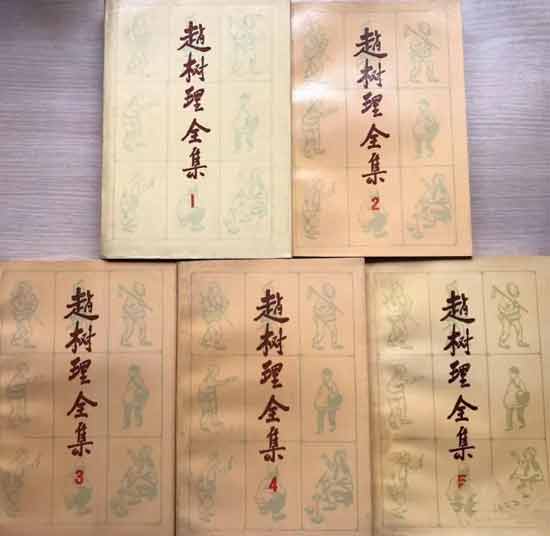 趙树理全集
1
趙树理全集
2
趙树理全集
3
趙树理全集
4
趙树理全集
5